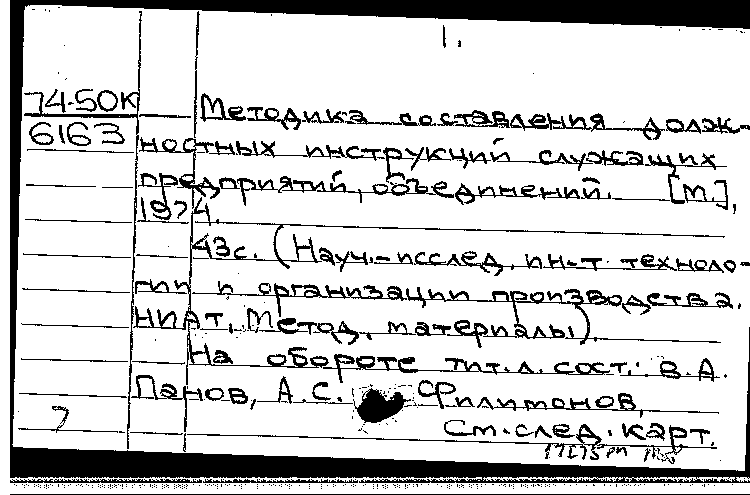 1.
74-50К
6163
Методика составления долж-
ностных инструкций служащих
предприятий, объединений. [М.],
1974.
43с. (Науч.-исслед. ин-т техноло-
гии и организации производства.
НИАТ, Метод. материалы).
На обороте тит. л. сост.: В.А.
Панов, А.С. Филимонов,
См. след. карт.